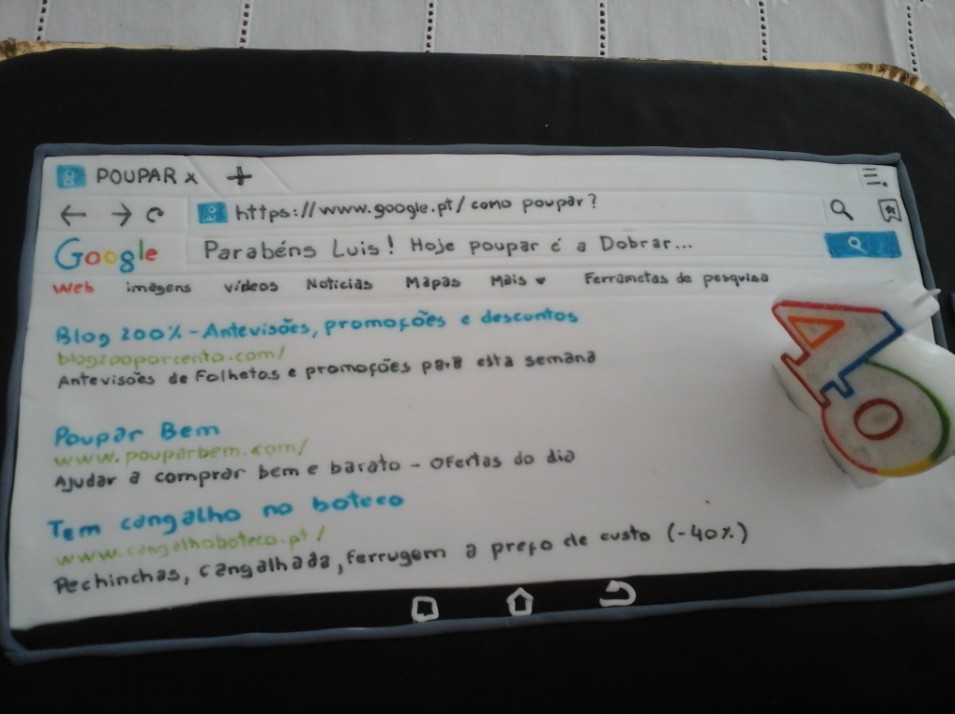 POUPAR x +
https://www.google.pt/como poupar?
Google Parabéns Luis! Hoje poupar é a Dobrar...
Web imagens vídeos Noticias Mapas Mais Ferrametas de pesquisa
Blog 200% - Antevisões, promoções e descontos
blog200porcento.com/
Antevisões de Folhetos e promoções para esta semana
Poupar Bem
www.pouparbem.com/
Ajudar a comprar bem e barato - ofertas do dia
Tem cangalho no boteco
www.cangalhoboteco.pt/
Pechinchas, cangalhada, Ferrugem a preço de custo (-40%)
40